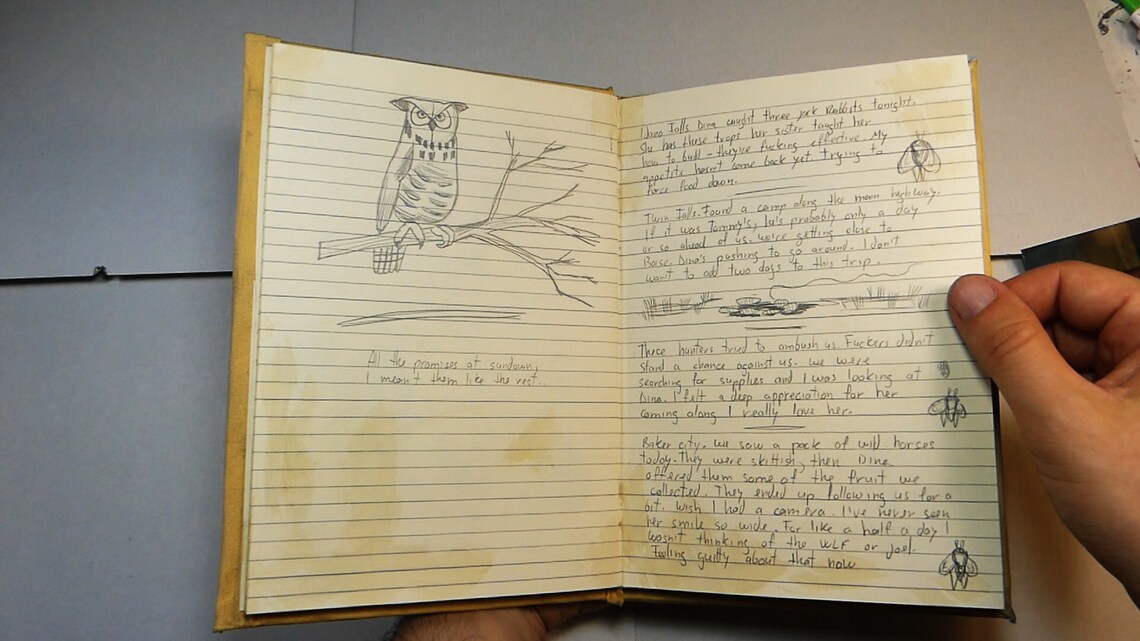 All the promises at sundown,
I meant them like the rest...
Idaho Falls Dina caught three jack Rabbits tonight.
She has these traps her sister taught her
how to built - they're fucking effective. My
appetite hasnt come back yet. trying to
force food down.
Twin Falls. Found a camp along the main highway.
If it was Tommy's, he's probably only a day
or so ahead of us. we're getting close to
Boise. Dina's pushing to go around. I don't
want to add two days to this trip.
These hunters tried to ambush us. Fuckers didn't
stand a chance against us. we were
searching for supplies and I was looking at
Dina. I felt a deep appreciation for her
coming along I really love her.
Baker city. we saw a pack of wild horses
today. They were skittish, then Dina
offered them some of the fruit we
collected. They ended up following us for a
bit. wish I had a camera. I've never seen
her smile so wide. For like a half a day I
wasn't thinking of the WLF or Joel.
Feeling guilty about that now